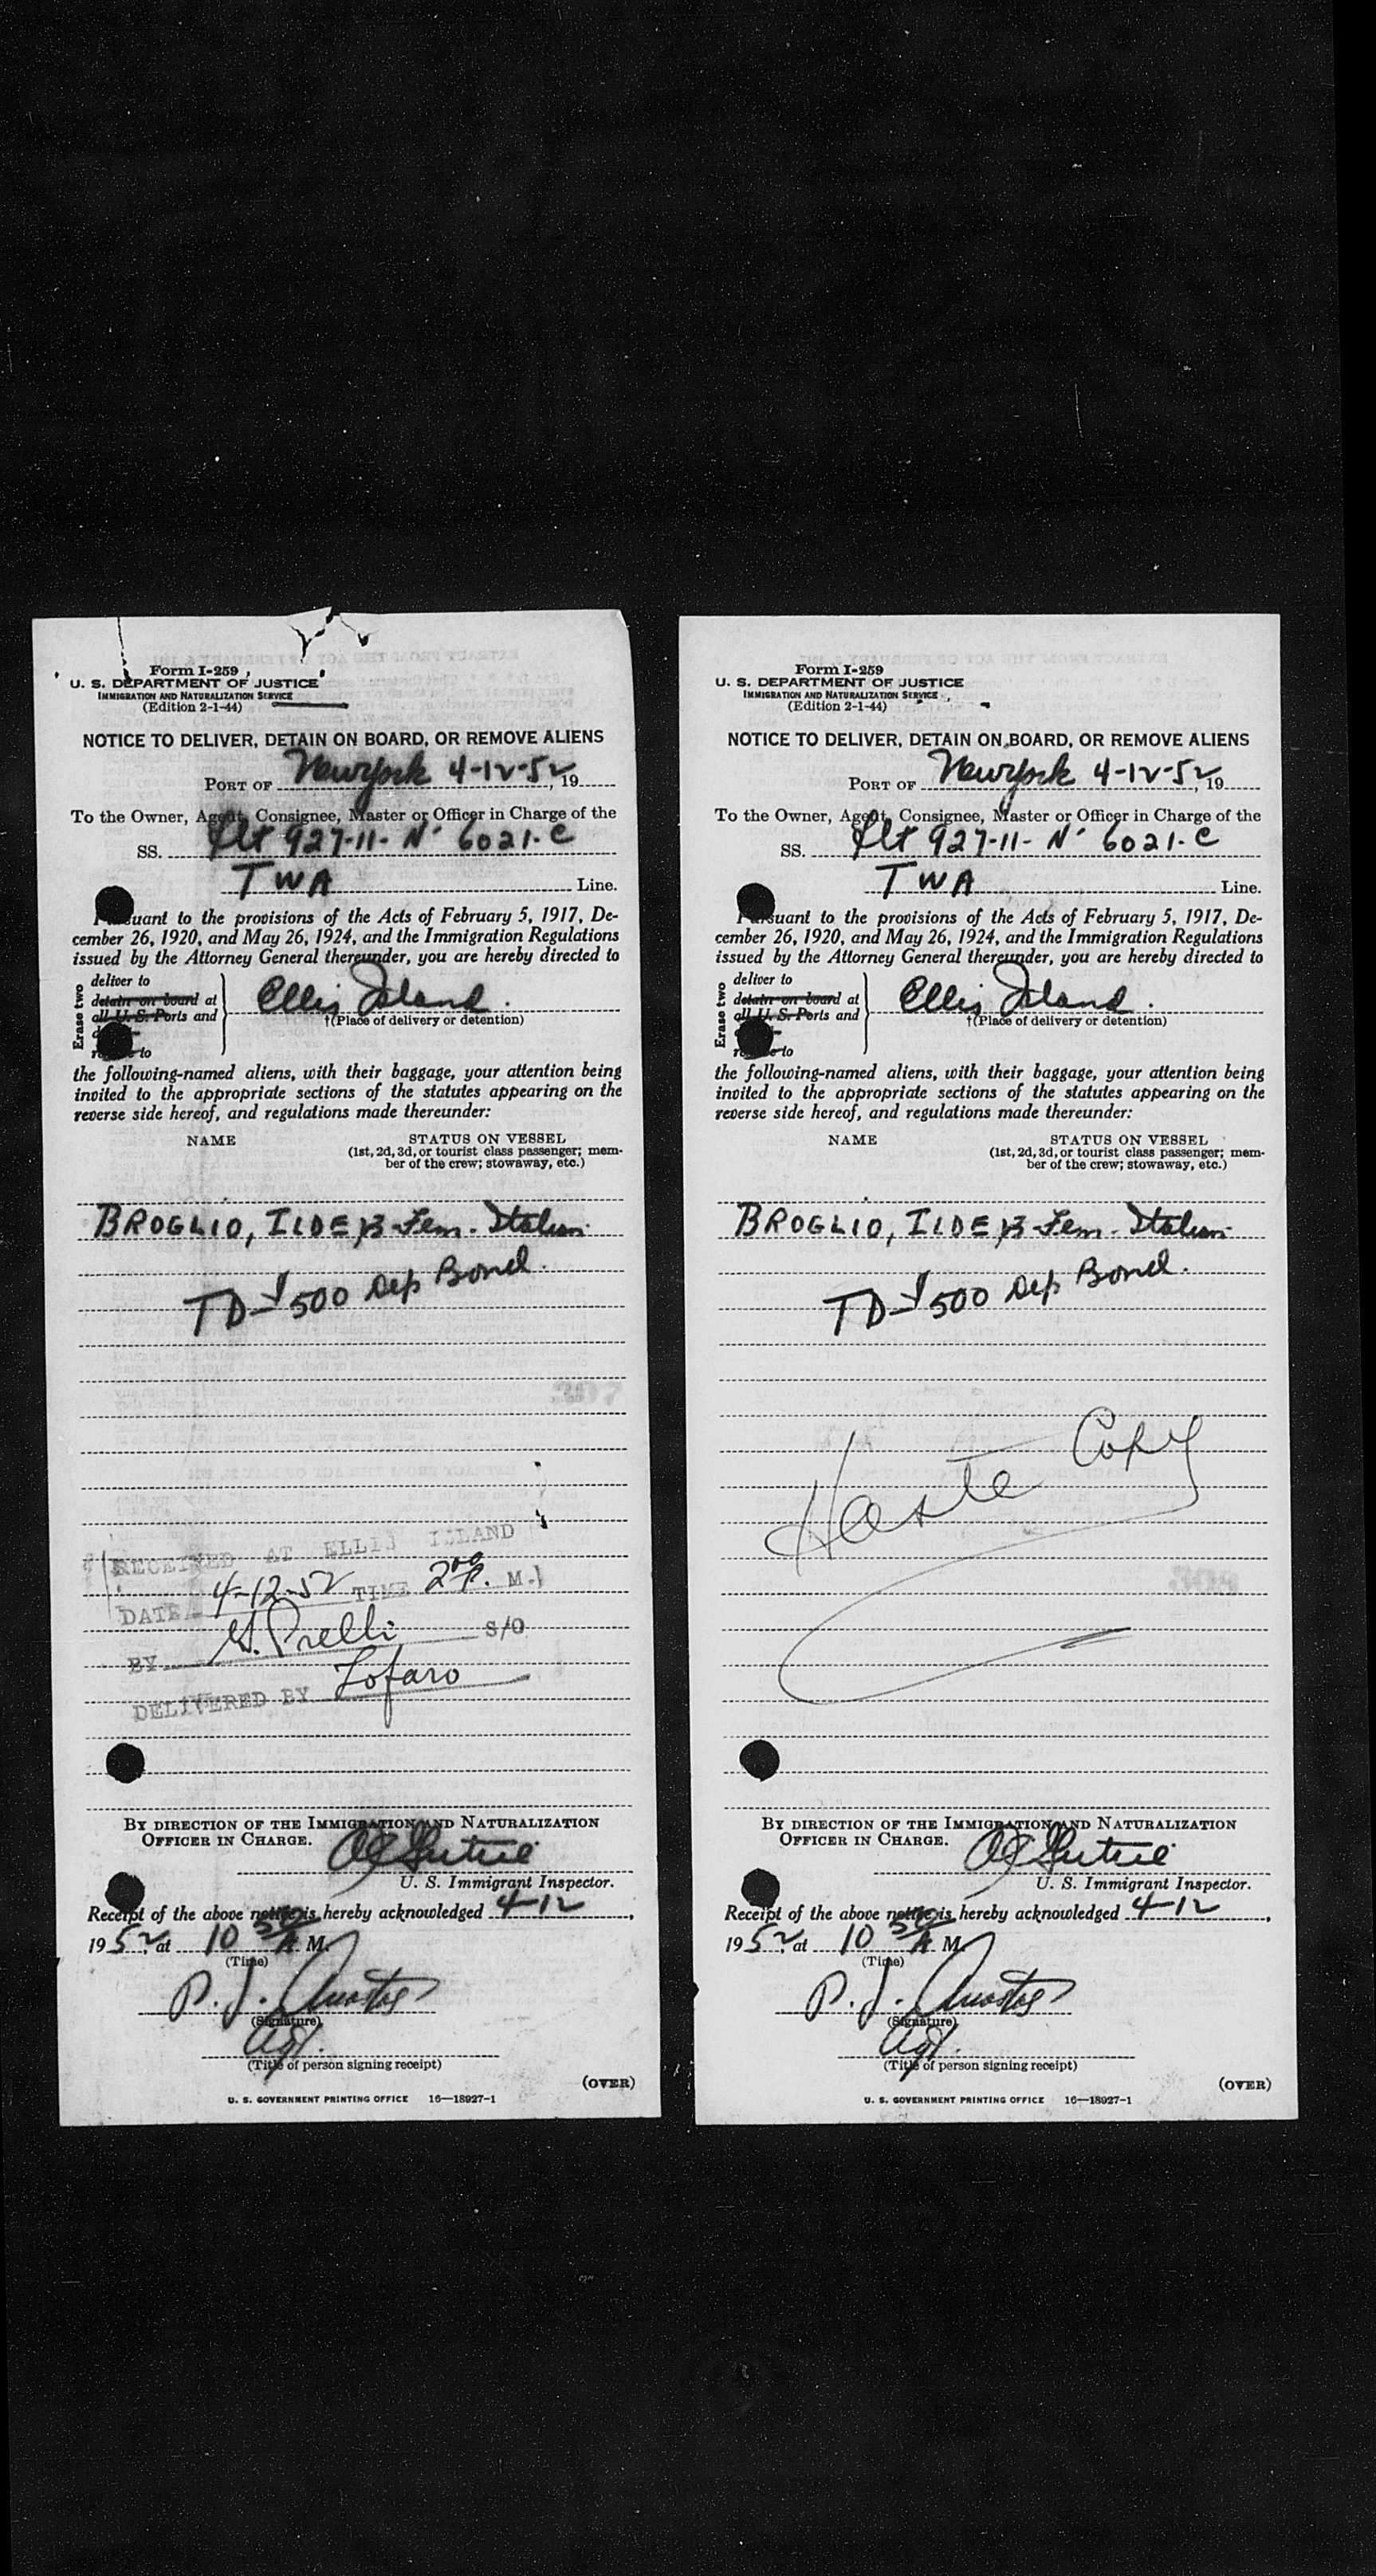 Form I-259
U. S. DEPARTMENT OF JUSTICE
IMMIGRATION AND NATURALIZATION SERVICE
(Edition 2-1-44)
NOTICE TO DELIVER, DETAIN ON BOARD, OR REMOVE ALIENS
PORT OF New York 4-12-52, 19
To the Owner, Agent, Consignee, Master or Officer in Charge of the
SS. Flt 927-11- N- 6021-C
TWA Line.
Pursuant to the provisions of the Acts of February 5, 1917, De-
cember 26, 1920, and May 26, 1924, and the Immigration Regulations
issued by the Attorney General thereunder, you are hereby directed to
Erase two
deliver to
detain on board at
all U. S. Ports and
to
Ellis Island.
†(Place of delivery or detention)
the following-named aliens, with their baggage, your attention being
invited to the appropriate sections of the statutes appearing on the
reverse side hereof, and regulations made thereunder:
NAME STATUS ON VESSEL
(1st, 2d, 3d, or tourist class passenger; mem-
ber of the crew; stowaway, etc.)
BROGLIO, ILDE, Fem. Italian
TD-$500 Dep Bond.
307
RECEIVED AT ELLIS ISLAND
DATE 4-12-52 TIME 2 00 P. M.
BY Prelli S/O
DELIVERED BY Lofaro
BY DIRECTION OF THE IMMIGRATION AND NATURALIZATION
OFFICER IN CHARGE.
U. S. Immigrant Inspector.
Receipt of the above notice is hereby acknowledged 4-12,
1952, at 10 30 A M.
(Time)
P. J.
(Signature)
Agt.
(Title of person signing receipt)
(OVER)
U. S. GOVERNMENT PRINTING OFFICE 16—18927-1
Form I-259
U. S. DEPARTMENT OF JUSTICE
IMMIGRATION AND NATURALIZATION SERVICE
(Edition 2-1-44)
NOTICE TO DELIVER, DETAIN ON BOARD, OR REMOVE ALIENS
PORT OF New York 4-12-52, 19
To the Owner, Agent, Consignee, Master or Officer in Charge of the
SS. Flt 927-11- N- 6021-C
TWA Line.
Pursuant to the provisions of the Acts of February 5, 1917, De-
cember 26, 1920, and May 26, 1924, and the Immigration Regulations
issued by the Attorney General thereunder, you are hereby directed to
Erase two
deliver to
detain on board at
all U. S. Ports and
to
Ellis Island.
†(Place of delivery or detention)
the following-named aliens, with their baggage, your attention being
invited to the appropriate sections of the statutes appearing on the
reverse side hereof, and regulations made thereunder:
NAME STATUS ON VESSEL
(1st, 2d, 3d, or tourist class passenger; mem-
ber of the crew; stowaway, etc.)
BROGLIO, ILDE, Fem. Italian
TD-$500 Dep Bond.
Haste Copy
BY DIRECTION OF THE IMMIGRATION AND NATURALIZATION
OFFICER IN CHARGE.
U. S. Immigrant Inspector.
Receipt of the above notice is hereby acknowledged 4-12,
1952, at 10 30 A M.
(Time)
P. J.
(Signature)
Agt.
(Title of person signing receipt)
(OVER)
U. S. GOVERNMENT PRINTING OFFICE 16—18927-1